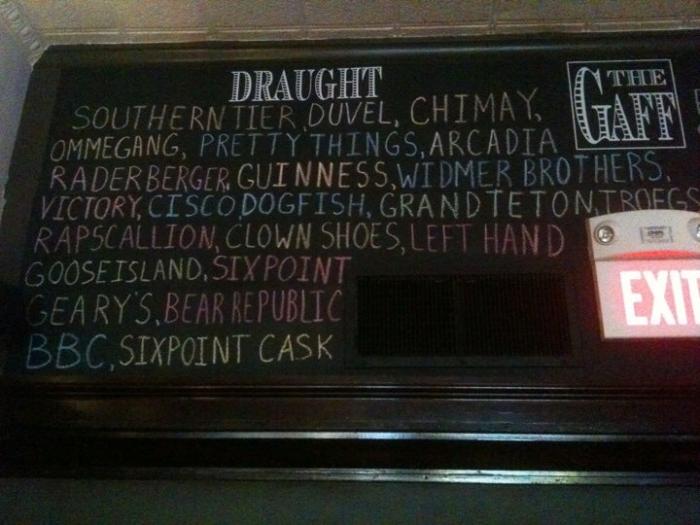 DRAUGHT
THE
GAFF
SOUTHERN TIER, DUVEL, CHIMAY,
OMMEGANG, PRETTY THINGS, ARCADIA
RADERBERGER, GUINNESS, WIDMER BROTHERS,
VICTORY, CISCO DOGFISH, GRAND TETON, TROEGS
RAPSCALLION, CLOWN SHOES, LEFT HAND
GOOSE ISLAND, SIXPOINT
GEARY'S, BEAR REPUBLIC
BBC, SIXPOINT CASK
EXIT